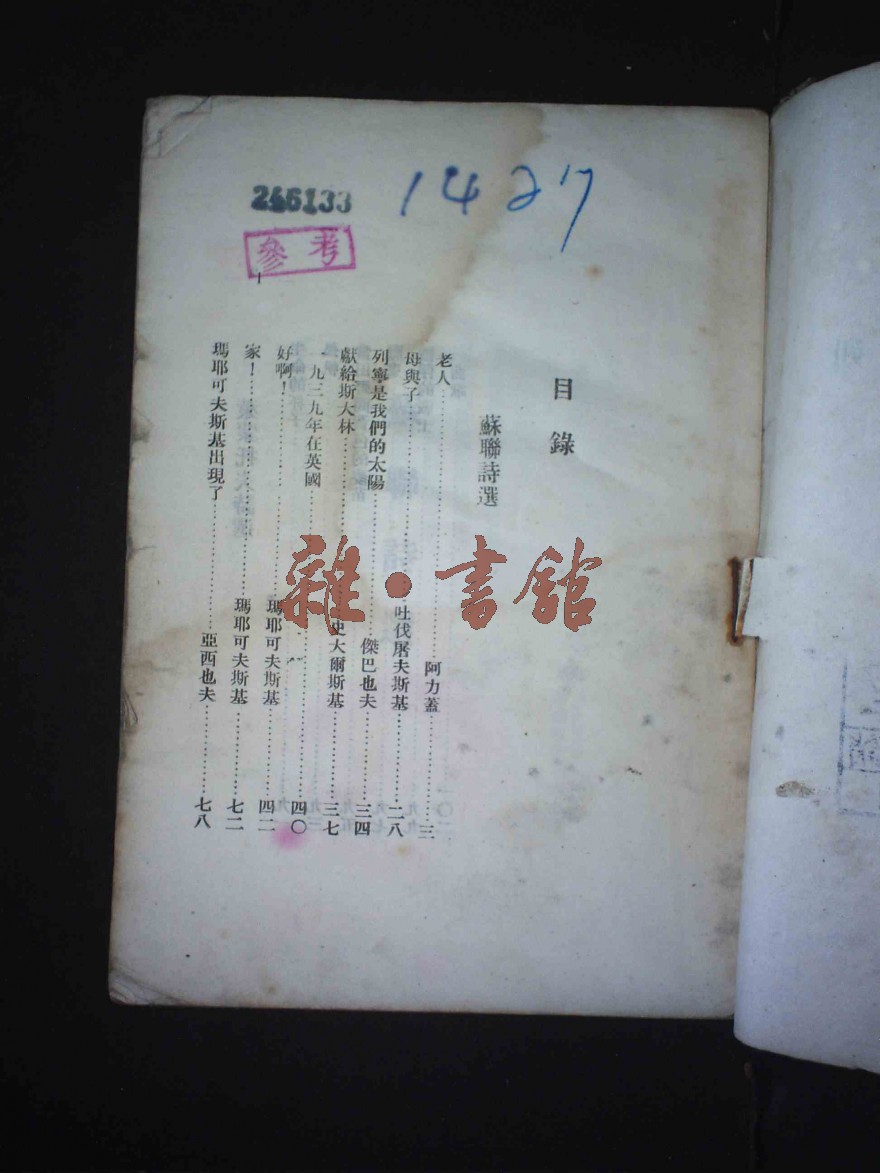 246133
1427
參考
目錄
蘇聯詩選
老人……阿力蓋……三
母與子……吐伐屠夫斯基……二八
列寧是我們的太陽……傑巴也夫……三四
獻給斯大林……史大爾斯基……三七
一九三九年在英國……四〇
好啊!……瑪耶可夫斯基……四二
家!……瑪耶可夫斯基……七二
瑪耶可夫斯基出現了……亞西也夫……七八
雜·書館